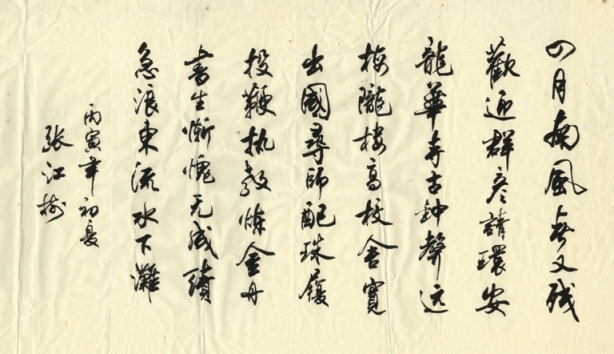 四月南風又残
歡迎群彦請環安
龍華寺古鐘聲远
梅隴樓高校舍寬
出國尋師配珠履
投鞭执教煉金丹
書生慚愧无成績
急浪東流水下灘
丙寅年初夏
张江树